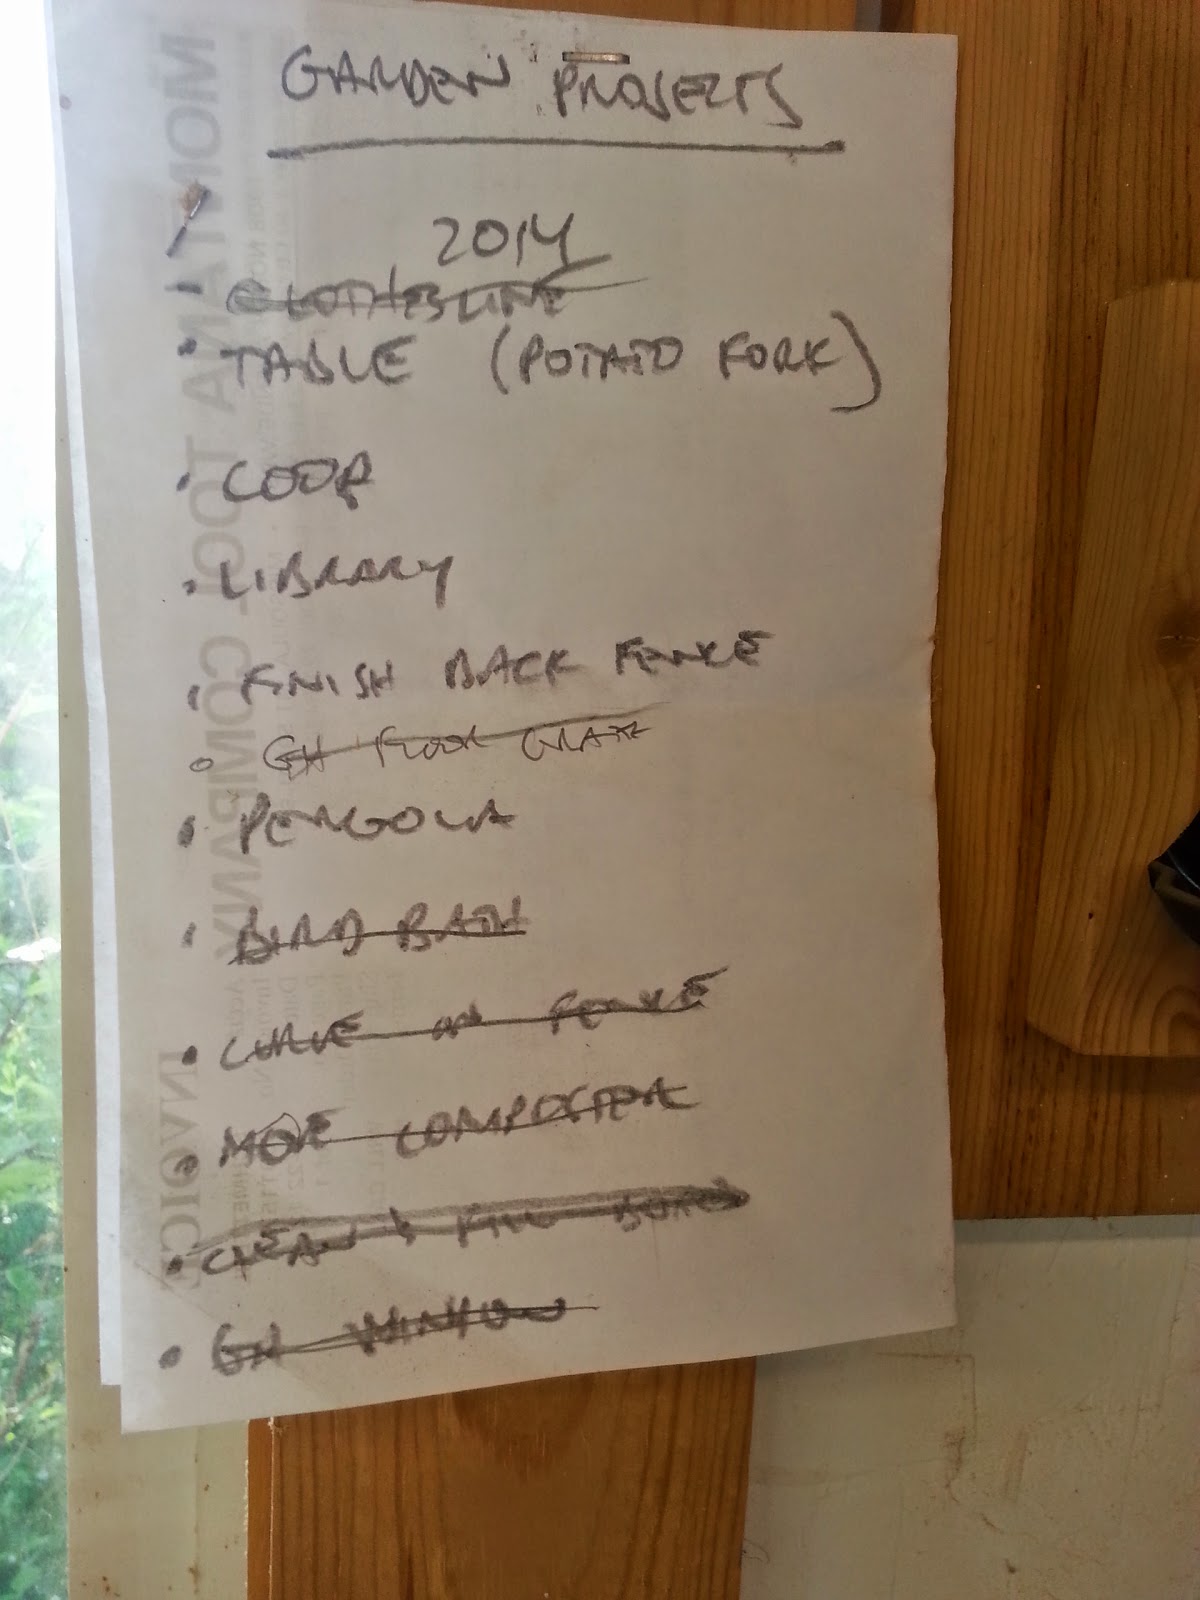 GARDEN PROJECTS
2014
CLOTHESLINE
• TABLE (POTATO FORK)
• COOP
• LIBRARY
• FINISH BACK FENCE
GH FLOOR
• PERGOLA
• BIRD BATH
• CURVE ON FENCE
• MOVE COMPOSTER
• CLEAN & FILL
• GH WINDOW
MONTANA TOOL COMPANY
INVOICE